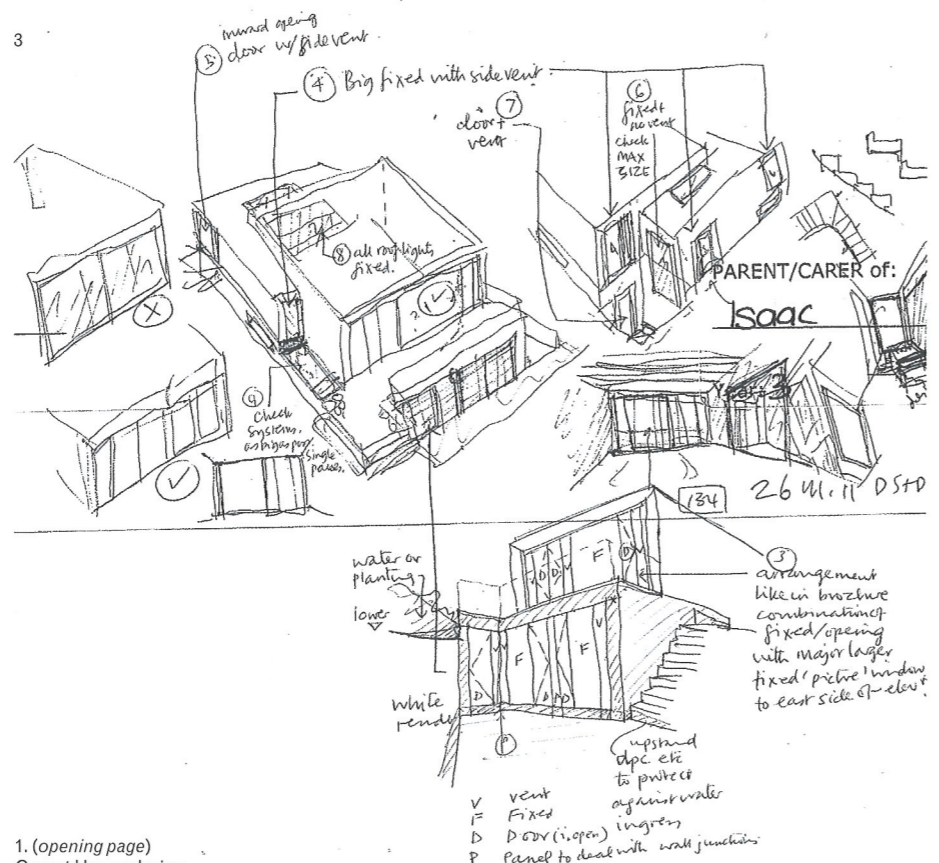 3
inward opening
5 door w/ side vent.
4 Big fixed with side vent.
7
door +
vent
6
fixed +
no vent
check
MAX
SIZE
8 all rooflights
fixed.
PARENT/CARER of:
Isaac
Year: 3
9
Check
systems,
as big as poss
single
panes.
26 111. 11 DStD
134
water or
planting
lower
white
render
3
arrangement
like in brochure
combination of
fixed/opening
with major larger
fixed 'picture' window
to east side of elev'
F
D
D
D
F
F
D
P
upstand
dpc etc
to protect
against water
ingress
V vent
F Fixed
D Door (i. open)
P Panel to deal with wall junctions
1. (opening page)